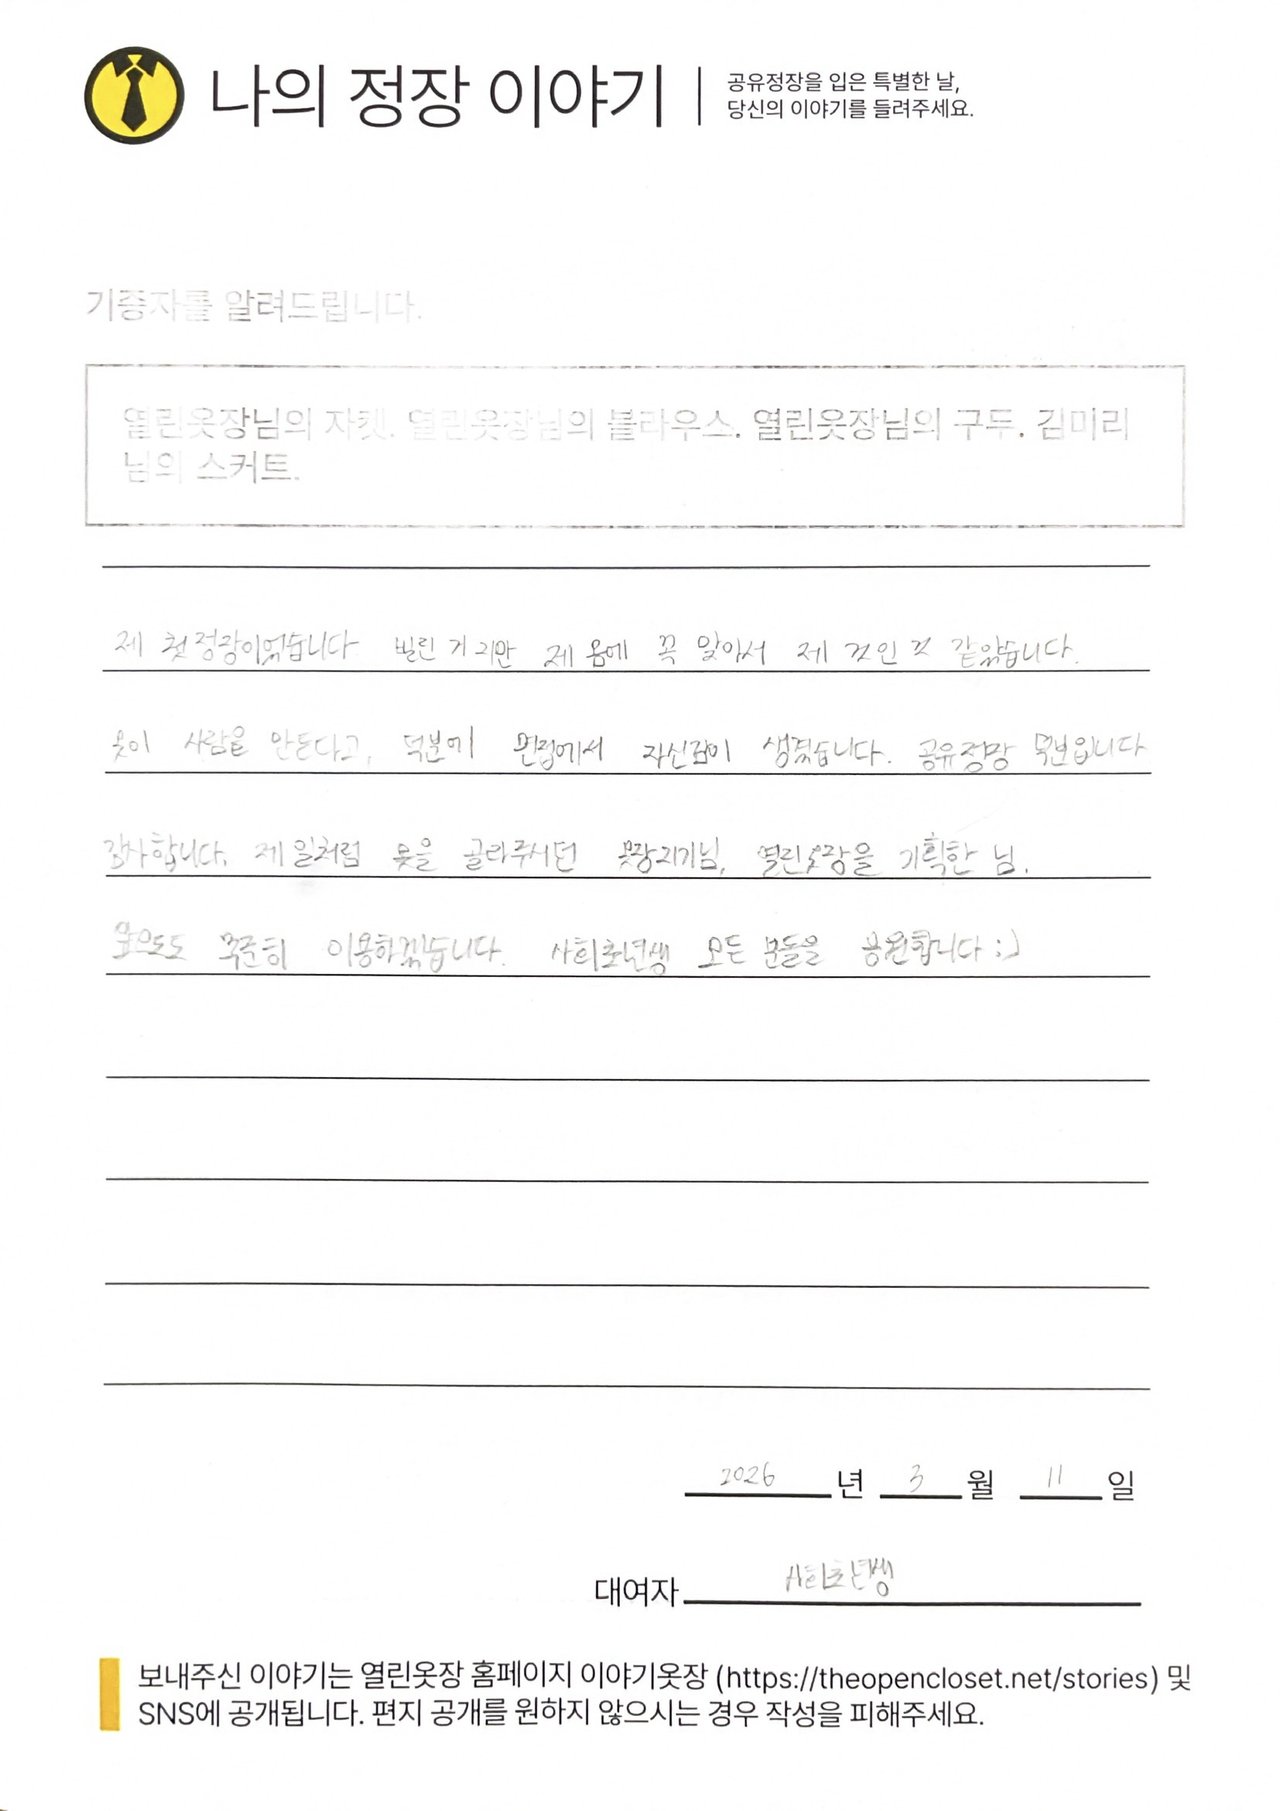 나의 정장 이야기
공유정장을 입은 특별한 날,
당신의 이야기를 들려주세요.
기증자를 알려드립니다.
열린옷장님의 자켓. 열린옷장님의 블라우스. 열린옷장님의 구두. 김미리
님의 스커트.
제 첫 정장이었습니다. 빌린 거지만 제 몸에 꼭 맞아서 제 것인 것 같았습니다.
옷이 사람을 만든다고, 덕분에 면접에서 자신감이 생겼습니다. 공유정장 덕분입니다
감사합니다. 제 일처럼 옷을 골라주시던 옷장지기님, 열린옷장을 기획한 님.
앞으로도 꾸준히 이용하겠습니다. 사회초년생 모든 분들을 응원합니다 :)
2026 년 3 월 11 일
대여자 사회초년생
보내주신 이야기는 열린옷장 홈페이지 이야기옷장 (https://theopencloset.net/stories) 및
SNS에 공개됩니다. 편지 공개를 원하지 않으시는 경우 작성을 피해주세요.